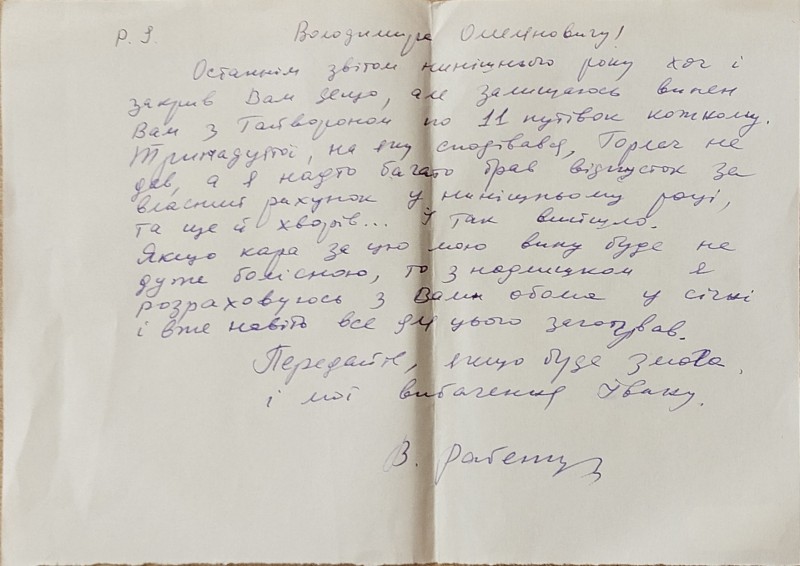 P. S. Володимире Омеляновичу!
Останнім звітом нинішнього року хоч і
закрив Вам дещо, але залишаюсь винен
Вам з Гайвороном по 11 путівок кожному.
Тринадцятої, на яку сподівався, Горлач не
дав, а я надто багато брав відпусток за
власний рахунок у нинішньому році,
та ще й хворів... І так вийшло.
Якщо кара за цю мою вину буде не
дуже болісною, то з надлишком я
розраховуюсь з Вами обома у січні
і вже навіть все для цього заготував.
Передайте, якщо буде змога,
і мої вибачення Івану.
В.